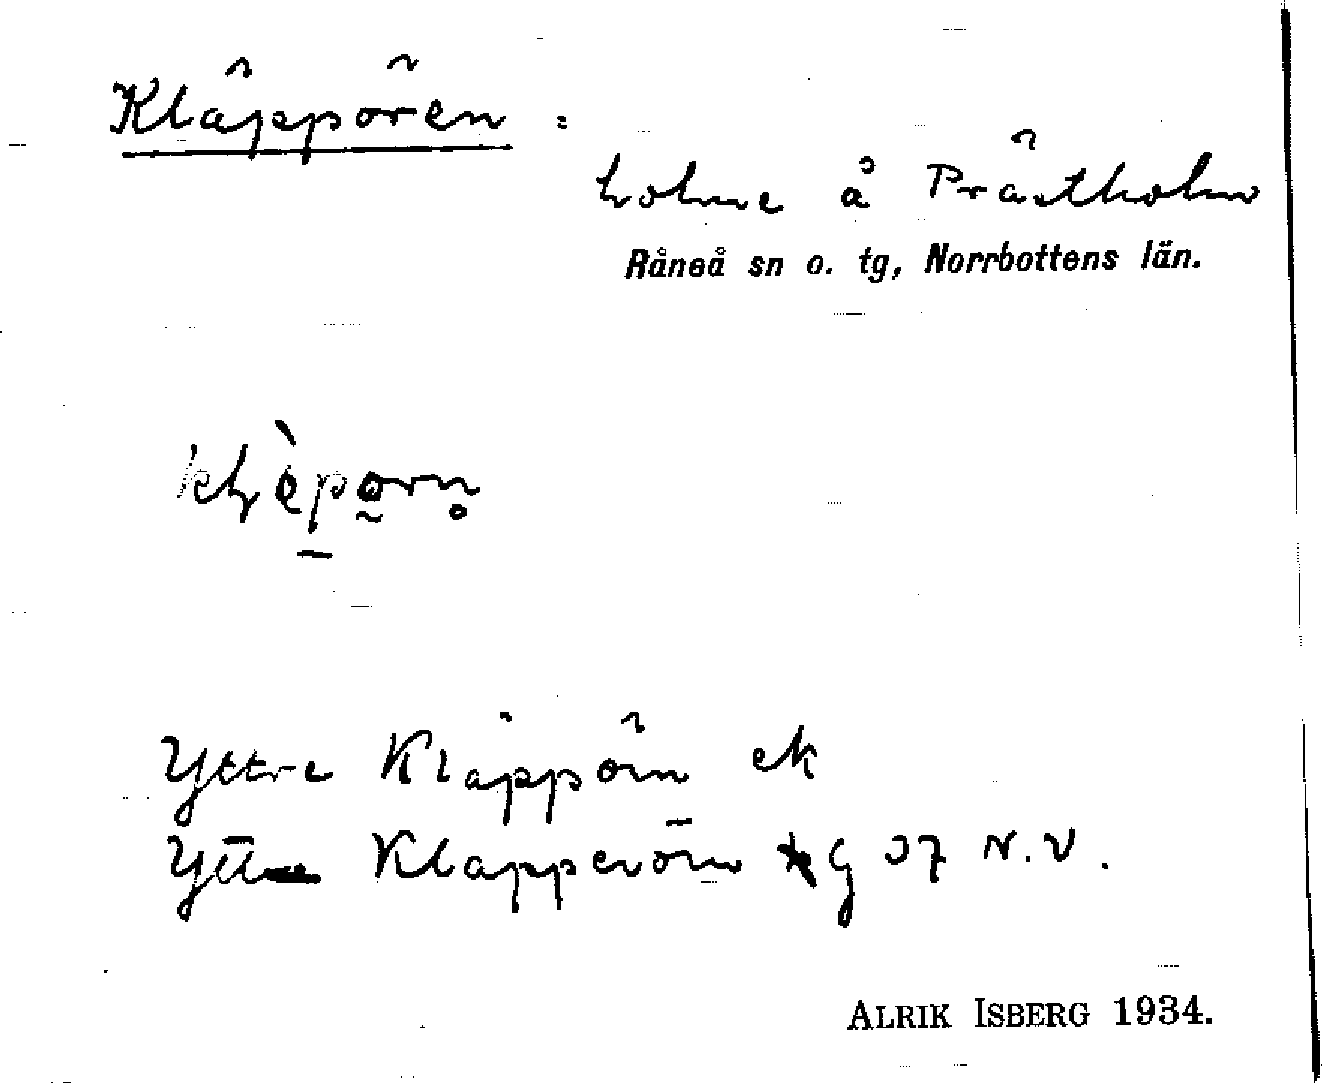 Kläppören:
holme å Prästholm
Råneå sn o. tg, Norrbottens län.
Yttre Kläppörn ek
Yttre Klapperörn g 37 N.V.
ALRIK ISBERG 1934.